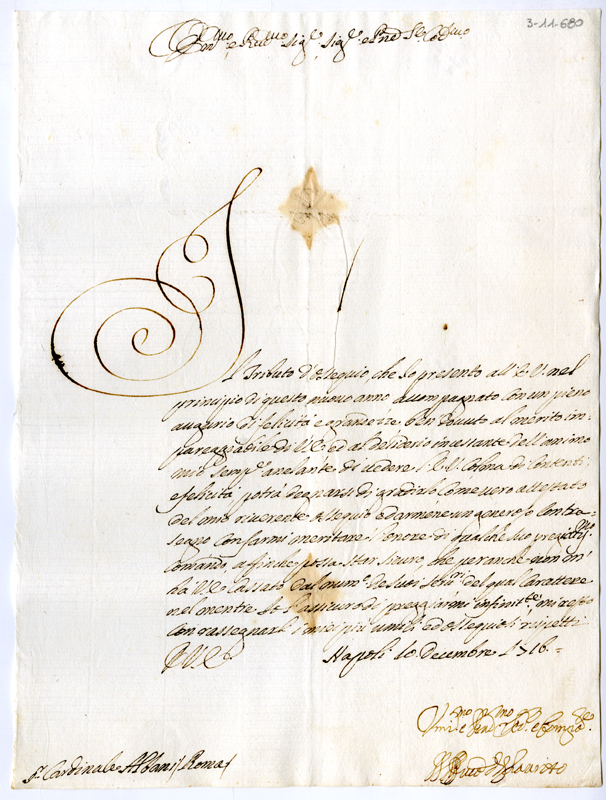 3-11-680
Em.mo e Rev.mo Sig.r Sig.r e Pne Col.mo
Il Tributo d'ossequio che Io presento all'E.V. nel
principio di questo nuovo anno accompagnato con un pieno
augurio di felicità e grandezze, ben dovuto al merito im-
pareggiabile di V.E. ed al desiderio incessante dell'animo
mio semp.e anelante di vedere l'E.V. colma di contenti,
e felicità, potrà degnarsi di gradirlo come vero attestato
del mio riverente ossequio e darmene un generoso contra-
segno con farmi meritare l'onore di qualche suo
comando, affinche possa star sicuro che peranche non m'
ha V.E. cassato dal num.o de suoi Ser.ri del qual Carattere
nel mentre l'assicuro di preggiarmi infinit.te, mi resto
con rassegnarle i miei più umili ed ossequiosi rispetti
D.V.E. Napoli 10 Decembre 1716.=
S.r Cardinale Albani / Roma /